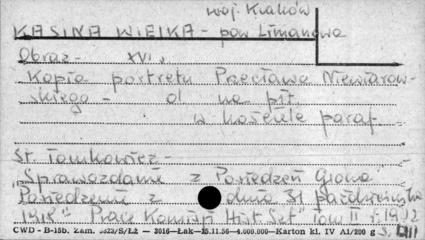 woj. Kraków
KASINA WIELKA - pow Limanowa
Obraz - XVI w.
Kopia portretu Pacława Niewiarow-
skiego - ol na płt.
w kościele paraf.
St. Tomkowicz -
"Sprawozdania z Posiedzeń Grona
Posiedzenie z dnia 31 października
1918" Prace Komisji Hist Szt" Tom II
CWD - B-15b. Zam. S/Łż — 3016—Łak—15.11.56—4.000.000—Karton kl. IV A1/200 g